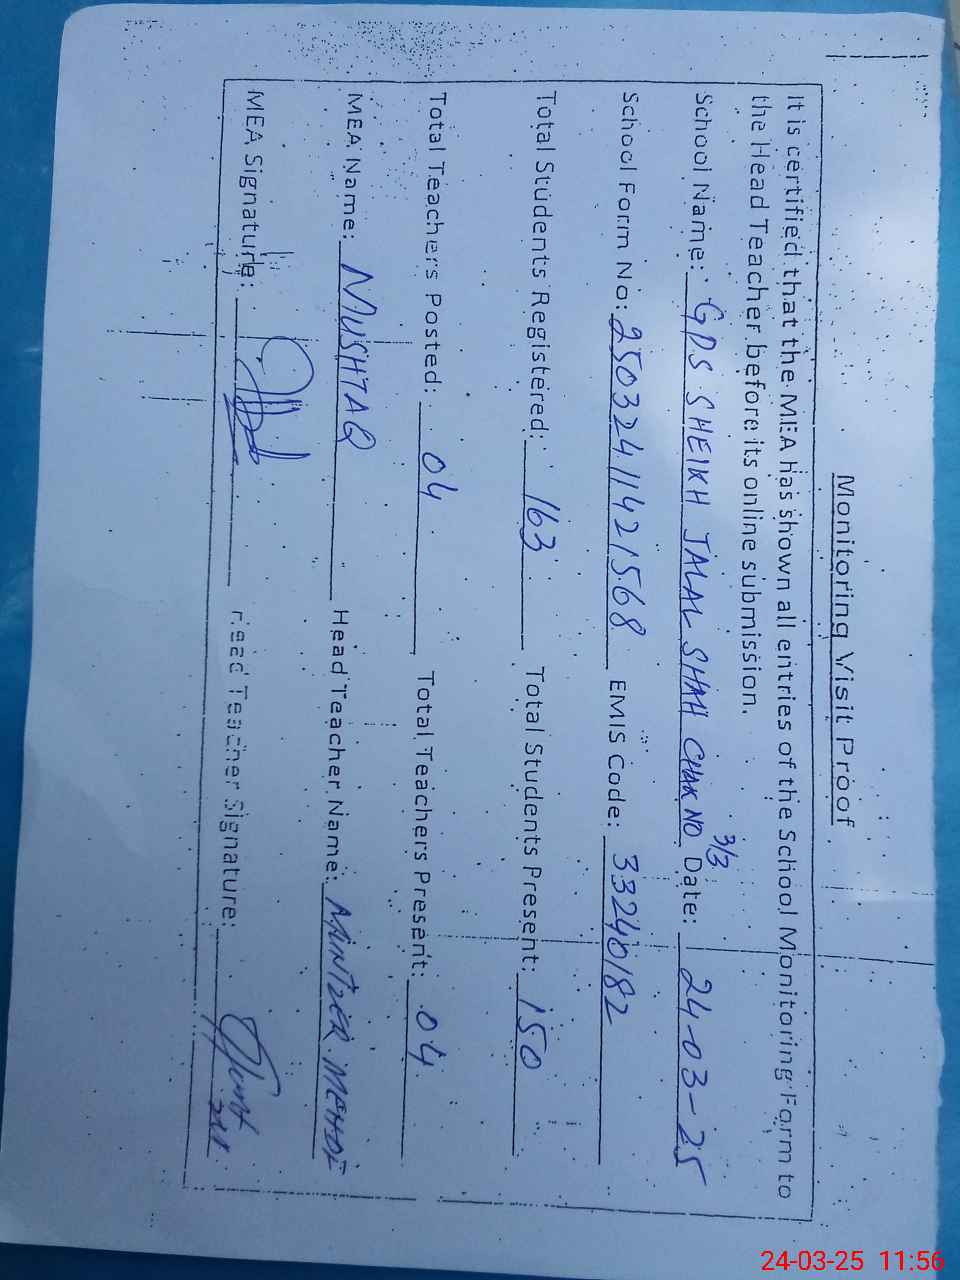 Monitoring Visit Proof
It is certified that the MEA has shown all entries of the School Monitoring Form to
the Head Teacher before its online submission.
School Name: GPS SHEIKH JALAL SHAH CHAK NO 3/3 Date: 24-03-25
School Form No: 25032411421568 EMIS Code: 33240182
Total Students Registered: 163 Total Students Present: 150
Total Teachers Posted: 04 Total Teachers Present: 04
MEA Name: MUSHTAQ Head Teacher Name: MEHDI
MEA Signature: Head Teacher Signature:
24-03-25 11:56